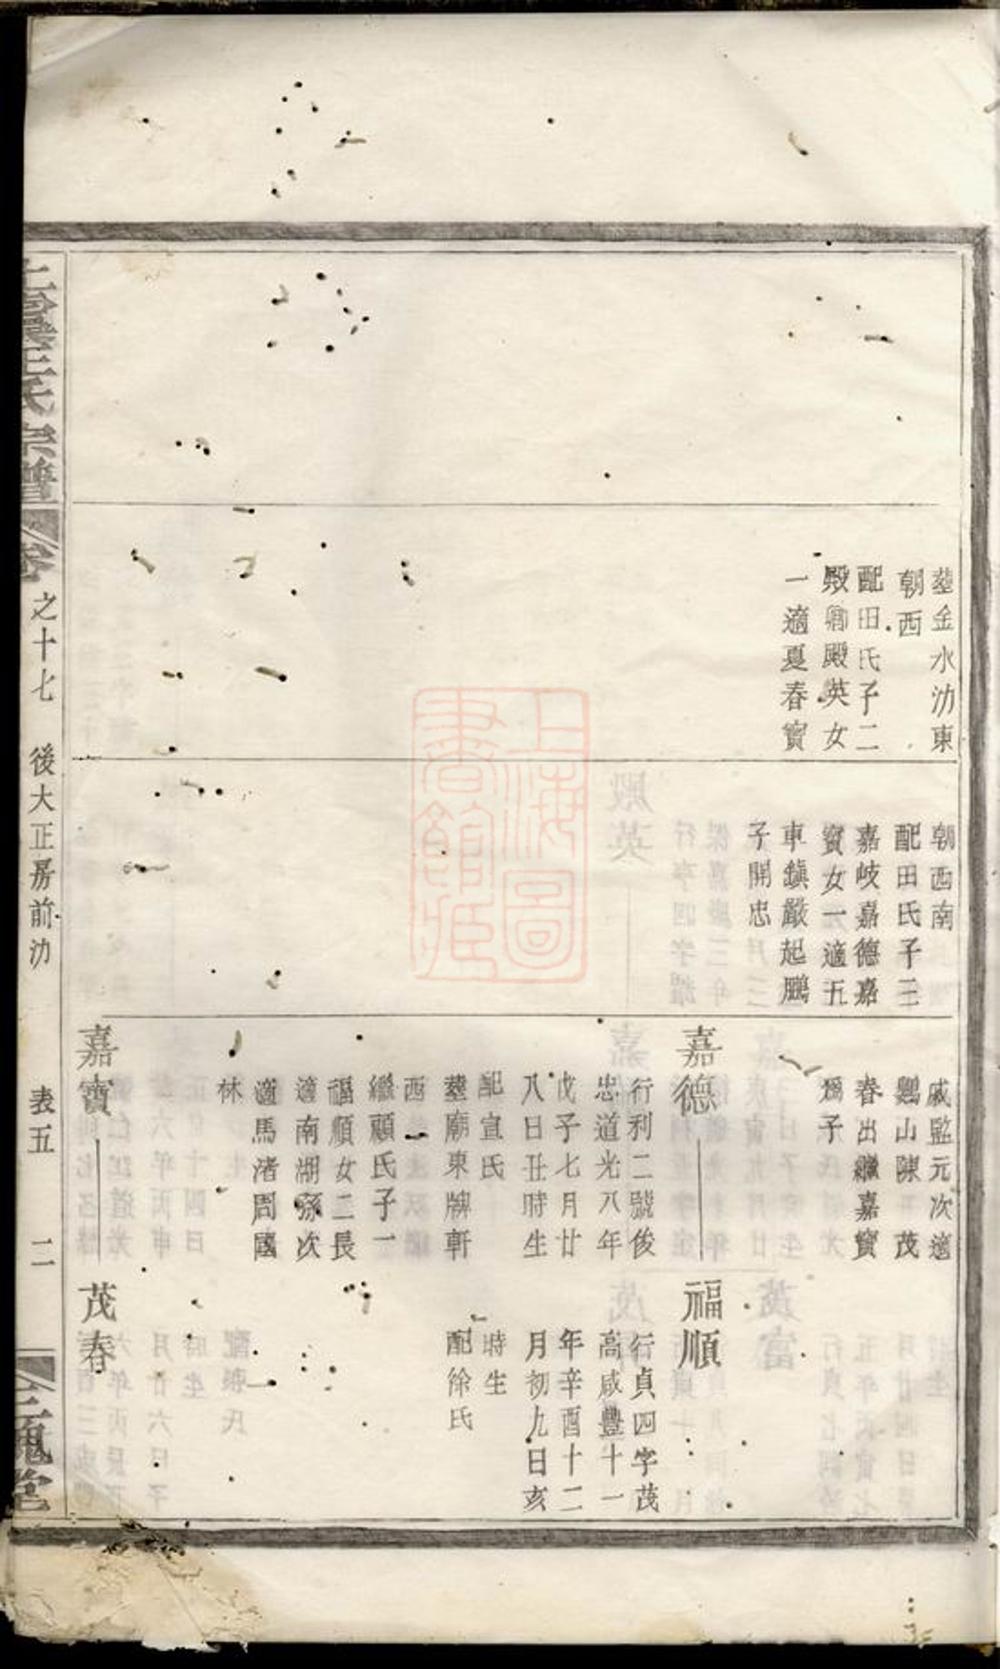 墓金水汋東
朝西
配田氏子二
殿卿殿英女
一適夏春寳
朝西南
配田氏子三
嘉岐嘉德嘉
寳女一適五
車鎮嚴起鵬
子開忠
戚監元次適
鳳山陳茂
春出繼嘉寳
爲子
嘉德
行利二號俊
忠道光八年
戊子七月廿
八日丑時生
配宣氏
墓廟東牌軒
西
繼顧氏子一
福順女二長
適南湖孫次
適馬渚周國
林
福順
行貞四字茂
高咸豐十一
年辛酉十二
月初九日亥
時生
配徐氏
嘉寳
茂春
王氏宗譜
卷之十七 後大正房前汋 表五 二
三槐堂
上海圖書館藏